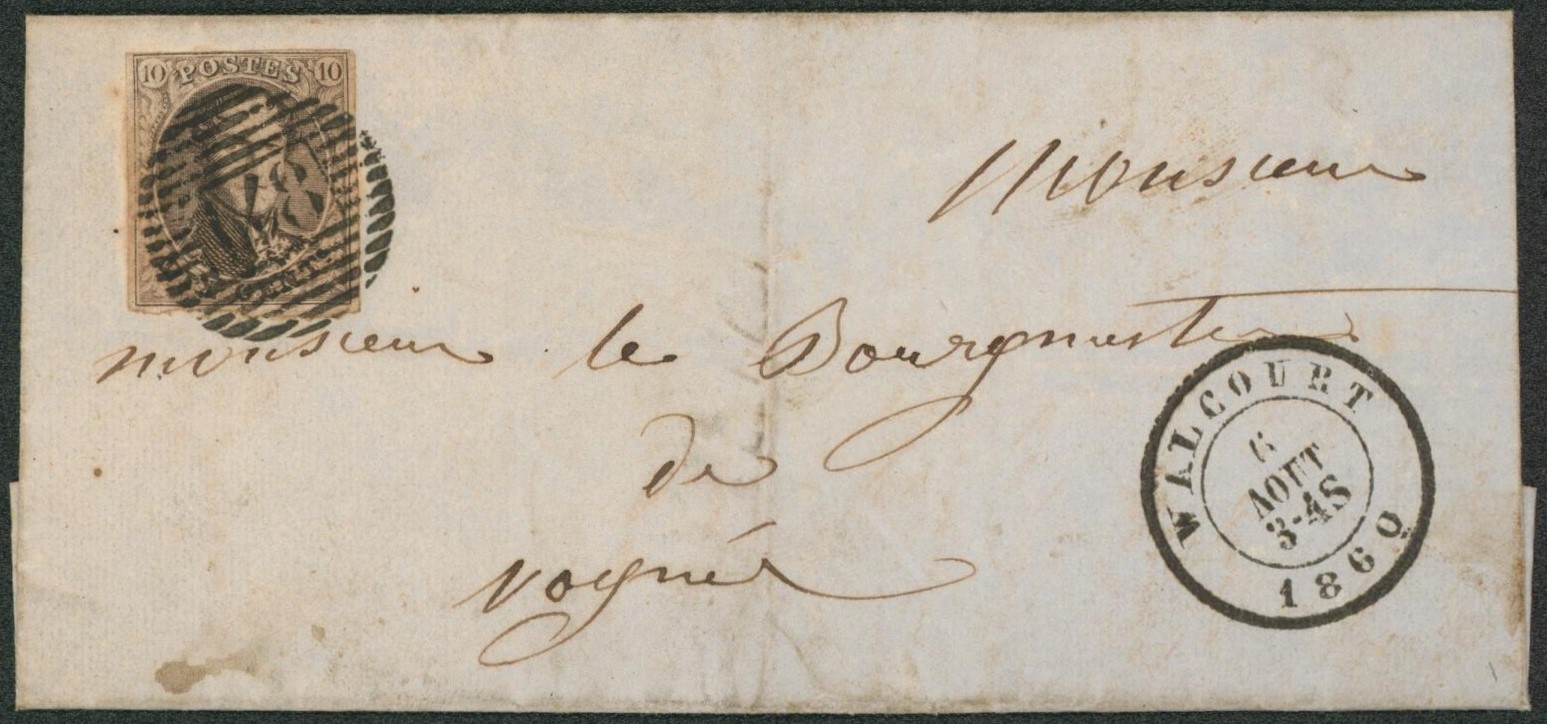 10 POSTES 10
Monsieur
monsieur le Bourgmestre
de
vogné
WALCOURT
6
AOUT
3-4S
1860